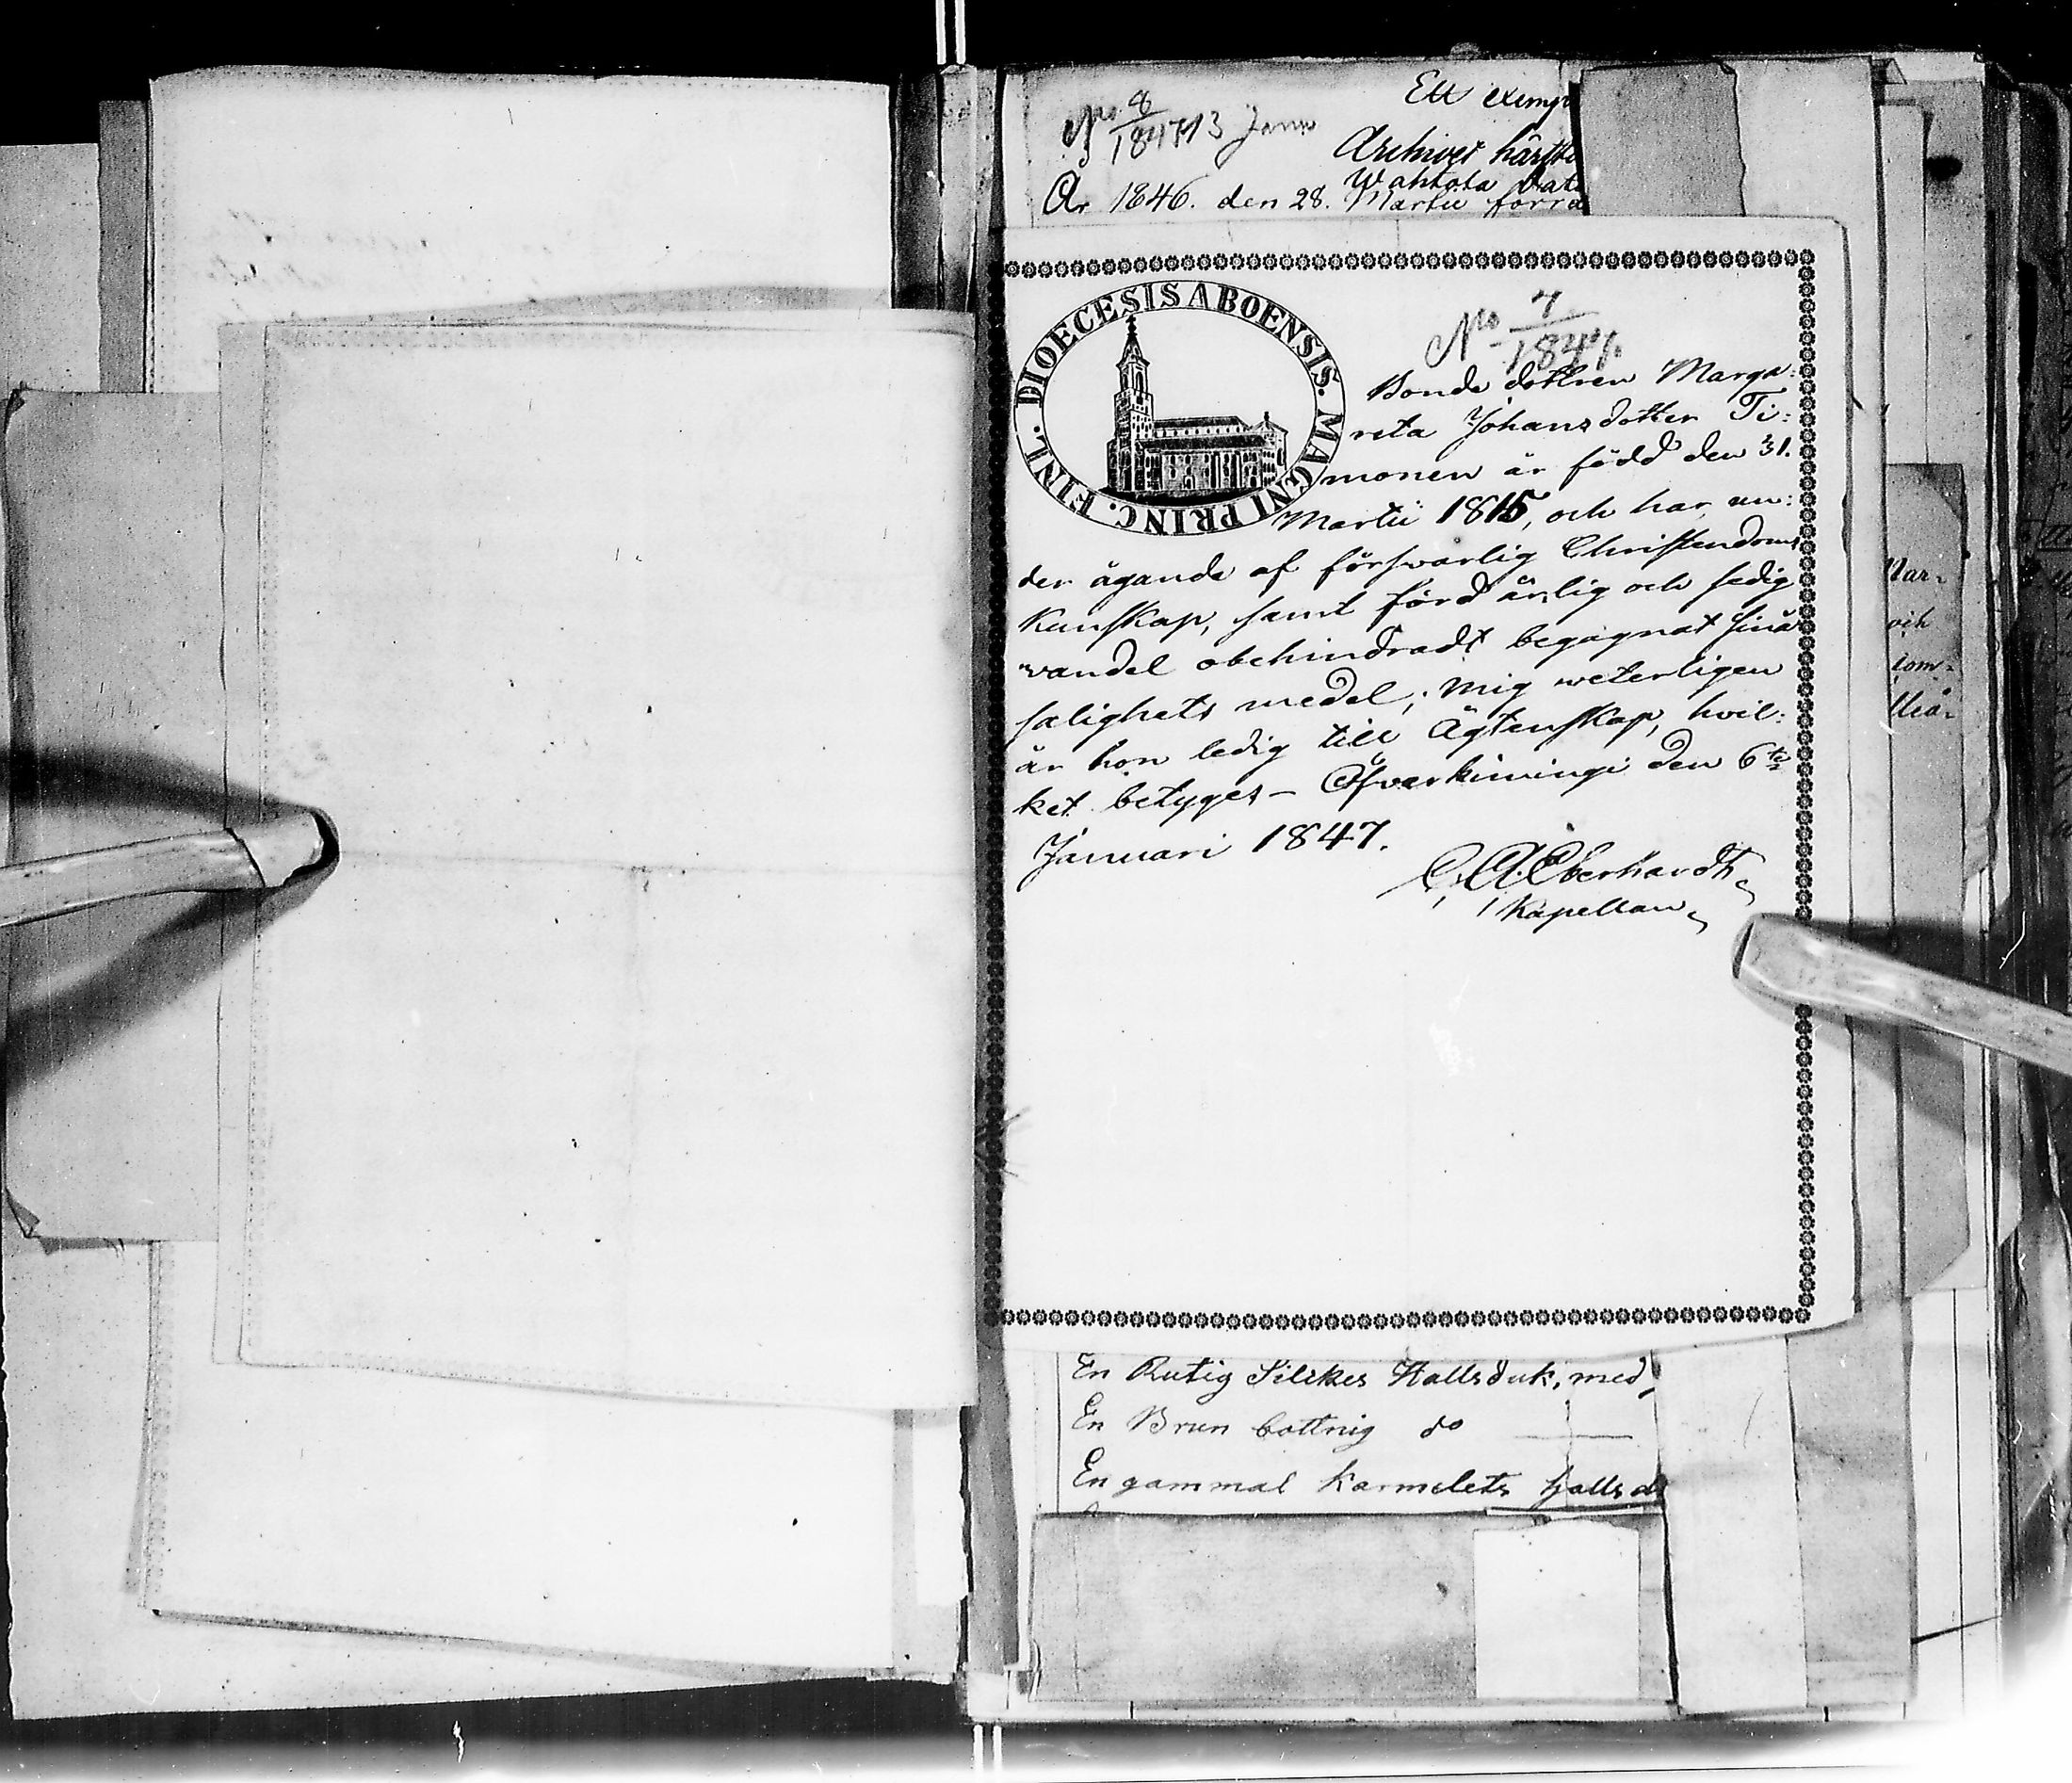 Ett exemp
No 8/1847 13 Janu
Archivet härstä
Wahtola
År 1846. den 28. Martii förra
DIOECESIS ABOENSIS. MAGNI PRINC. FINL.
No 7/1847.
Bonde dottren Marga:
reta Johansdotter Ti:
monen är född den 31.
Martii 1815, och har un:
der ägande af förswarlig Christendoms
Kunskap, samt förd ärlig och sedig
vandel obehindradt begagnat sina
salighets medel; mig weterligen
är hon ledig till Ägtenskap, hvil:
ket betyges – Öfverkiimingi den 6te
Januari 1847.
C. A. Eberhardt
Kapellan
Mar=
och
som=
En Rutig Silikes Hallsduk, med
En Brun bottnig do
En gammal Karmelets halls d